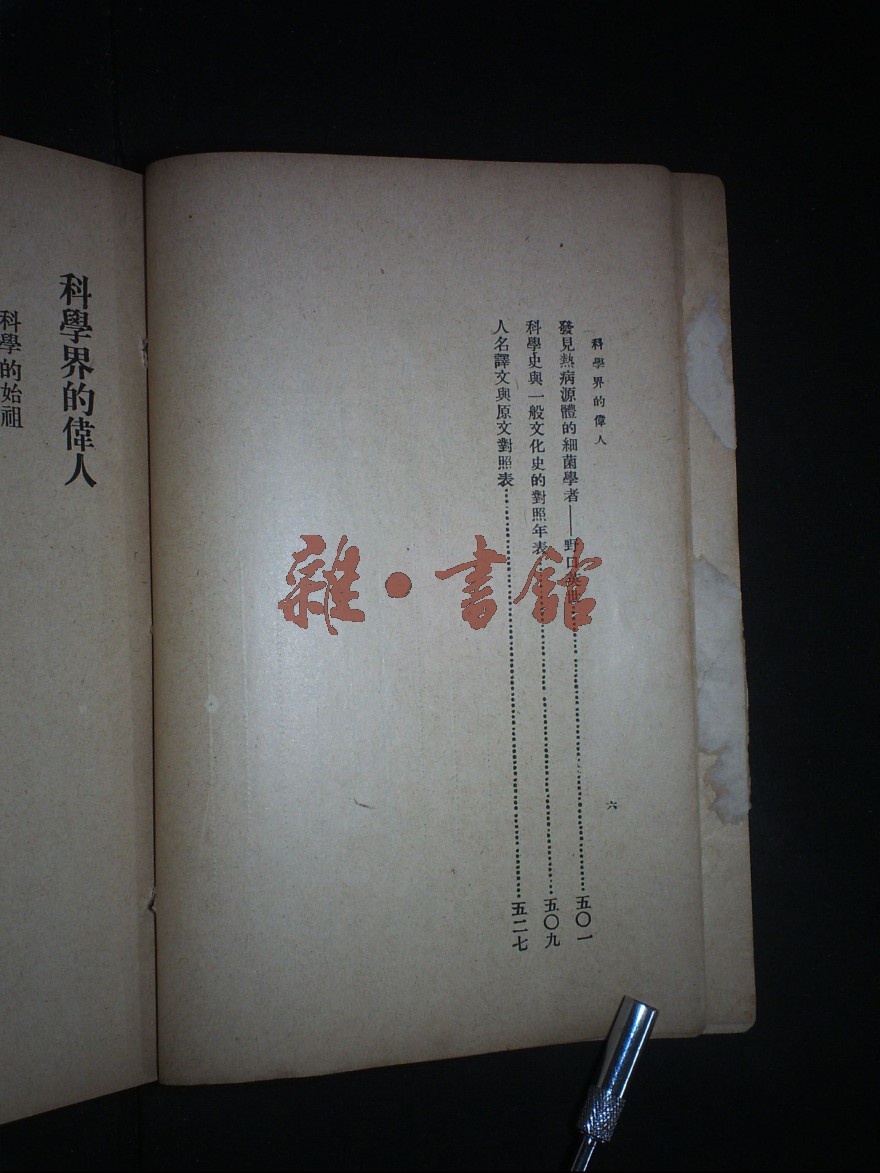 科學界的偉人
六
發見熱病源體的細菌學者——野口英世……五〇一
科學史與一般文化史的對照年表……五〇九
人名譯文與原文對照表……五二七
科學界的偉人
科學的始祖
雜·書館